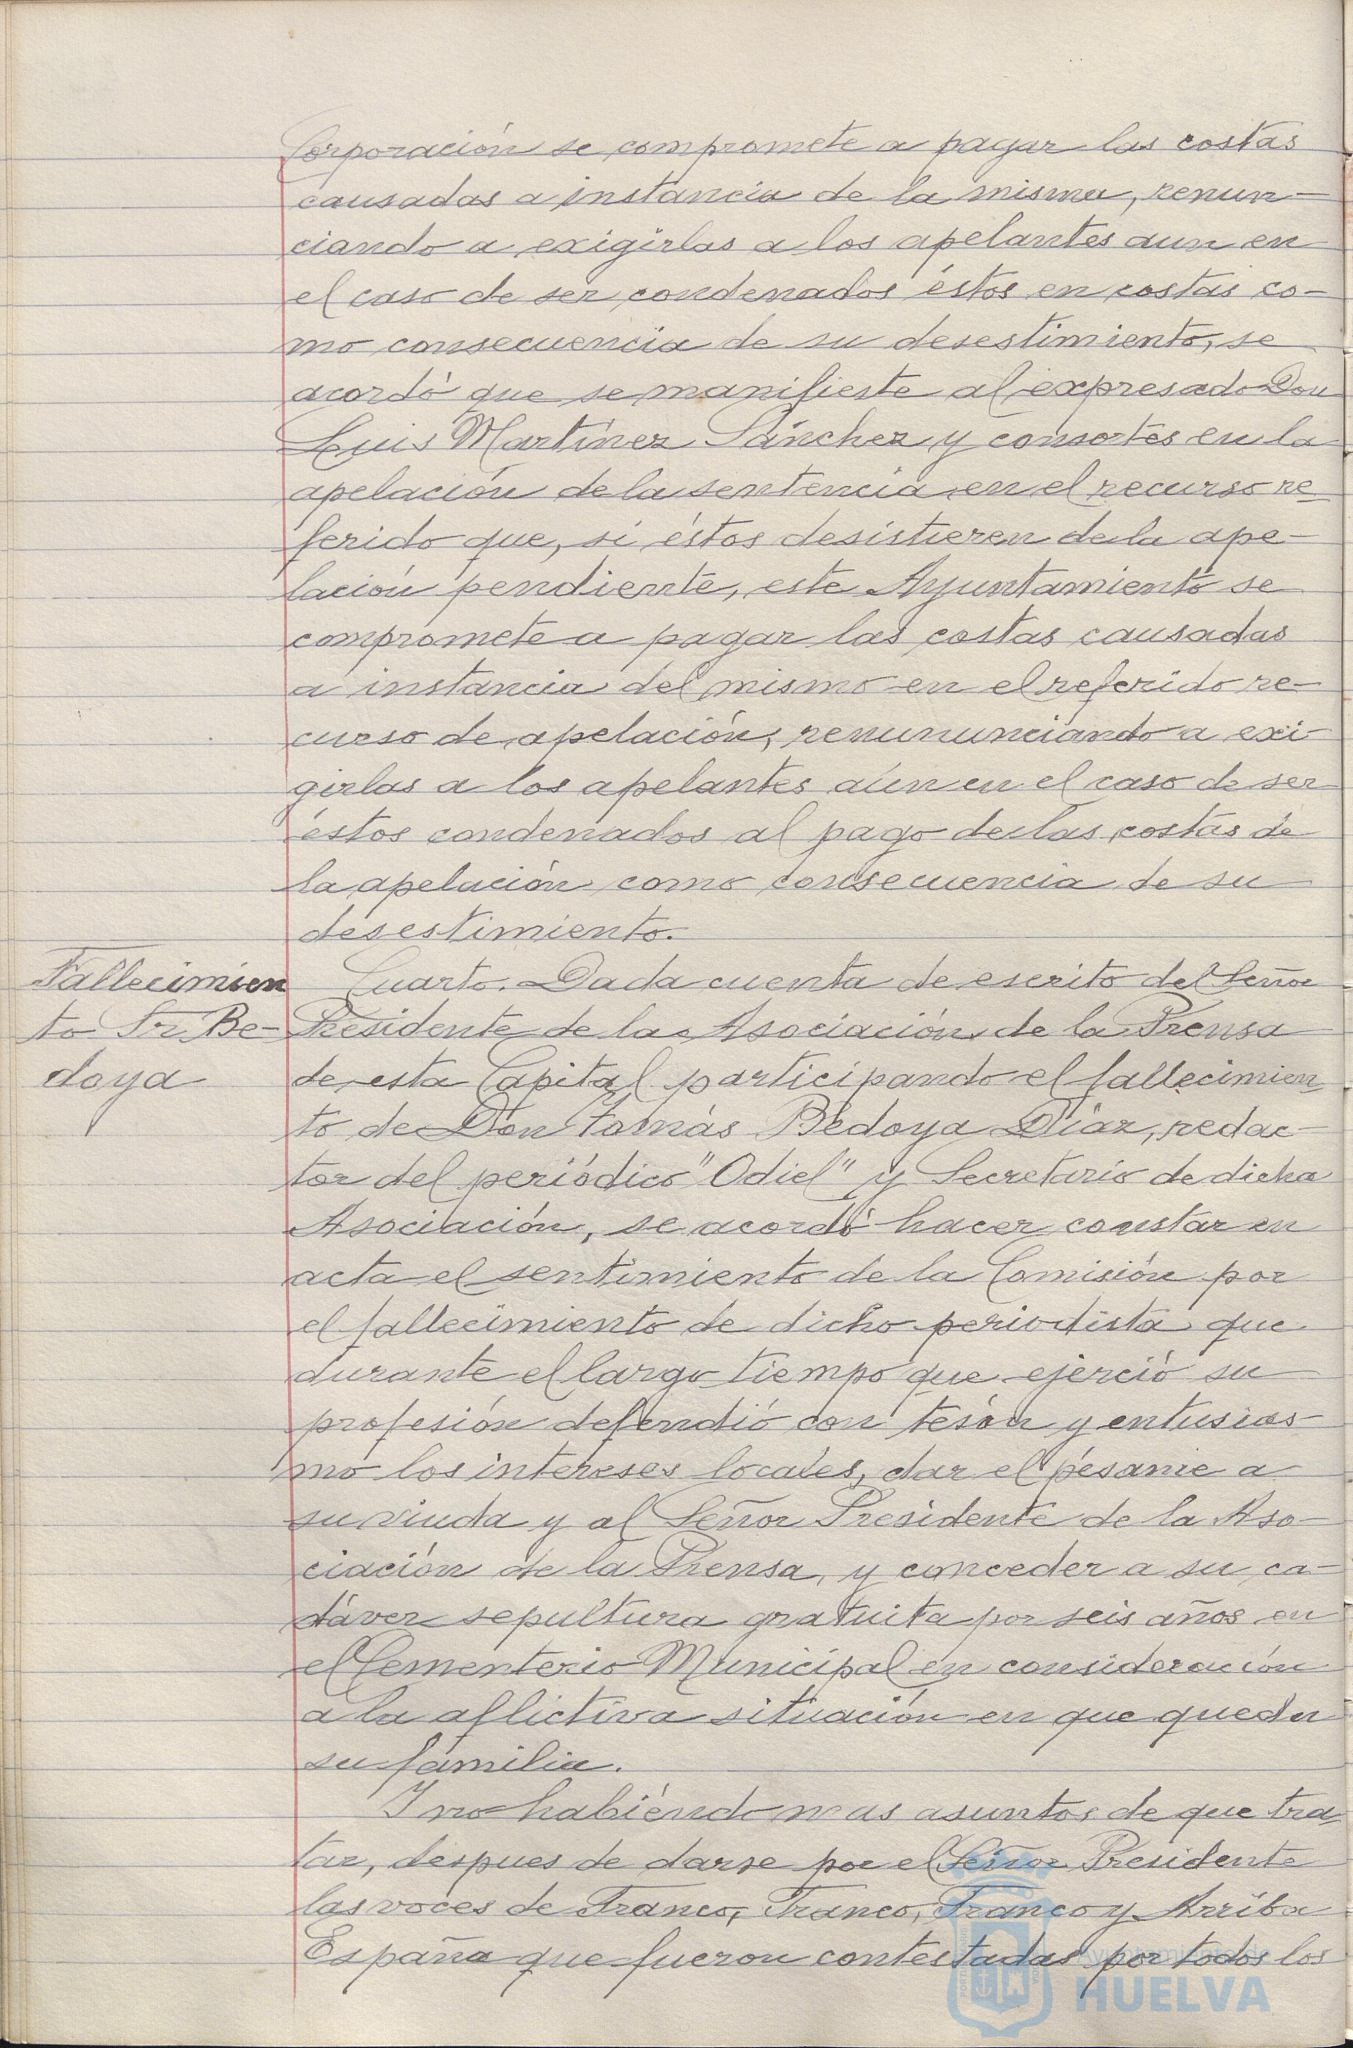 Corporación se compromete a pagar las costas
causadas a instancia de la misma, renun-
ciando a exigirlas a los apelantes aun en
el caso de ser condenados éstos en costas co-
mo consecuencia de su desestimiento, se
acordó que se manifieste al expresado Don
Luis Martínez Sánchez y consortes en la
apelación de la sentencia en el recurso re-
ferido que, si éstos desistieren de la ape-
lación pendiente, este Ayuntamiento se
compromete a pagar las costas causadas
a instancia del mismo en el referido re-
curso de apelación, renununciando a exi-
girlas a los apelantes aún en el caso de ser
éstos condenados al pago de las costas de
la apelación como consecuencia de su
desestimiento.
Fallecimien
to Sr. Be-
doya
Cuarto. Dada cuenta de escrito del Señor
Presidente de la Asociación de la Prensa
de esta Capital participando el fallecimien
to de Don Tomás Bedoya Díaz, redac-
tor del periódico "Odiel" y Secretario de dicha
Asociación, se acordó hacer constar en
acta el sentimiento de la Comisión por
el fallecimiento de dicho periodista que
durante el largo tiempo que ejerció su
profesión defendió con tesón y entusias-
mo los intereses locales, dar el pésame a
su viuda y al Señor Presidente de la Aso-
ciación de la Prensa, y conceder a su ca-
dáver sepultura gratuita por seis años en
el Cementerio Municipal en consideración
a la aflictiva situación en que queda
su familia.
Y no habiendo mas asuntos de que tra
tar, despues de darse por el Señor Presidente
las voces de Franco, Franco, Franco y Arriba
España que fueron contestadas por todos los
Ayuntamiento de
HUELVA